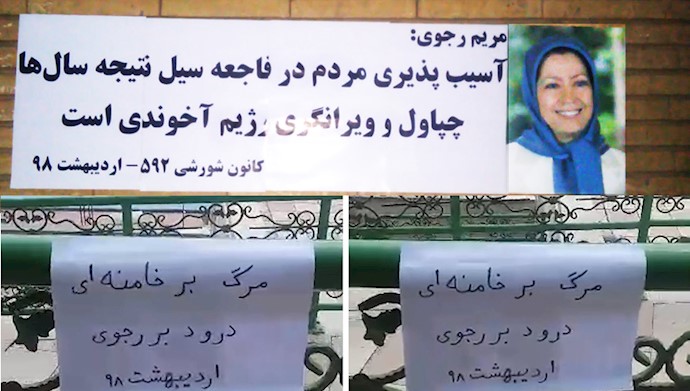 مریم رجوی:
آسیب پذیری مردم در فاجعه سیل نتیجه سال‌ها
چپاول و ویرانگری رژیم آخوندی است
کانون شورشی ۵۹۲ – اردیبهشت ۹۸
مرگ بر خامنه‌ای
درود بر رجوی
اردیبهشت ۹۸
مرگ بر خامنه‌ای
درود بر رجوی
اردیبهشت ۹۸